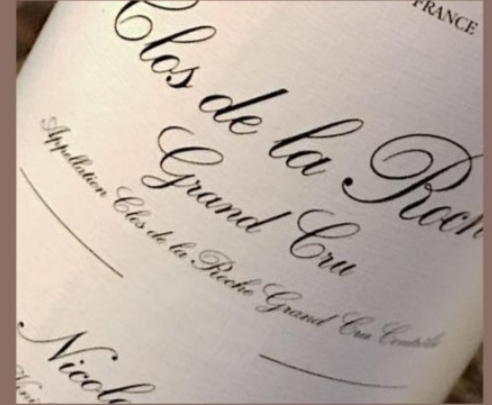 FRANCE
Clos de la Roch
Grand Cru
Appellation Clos de la Roche Grand Cru Contrôlée
Nicola